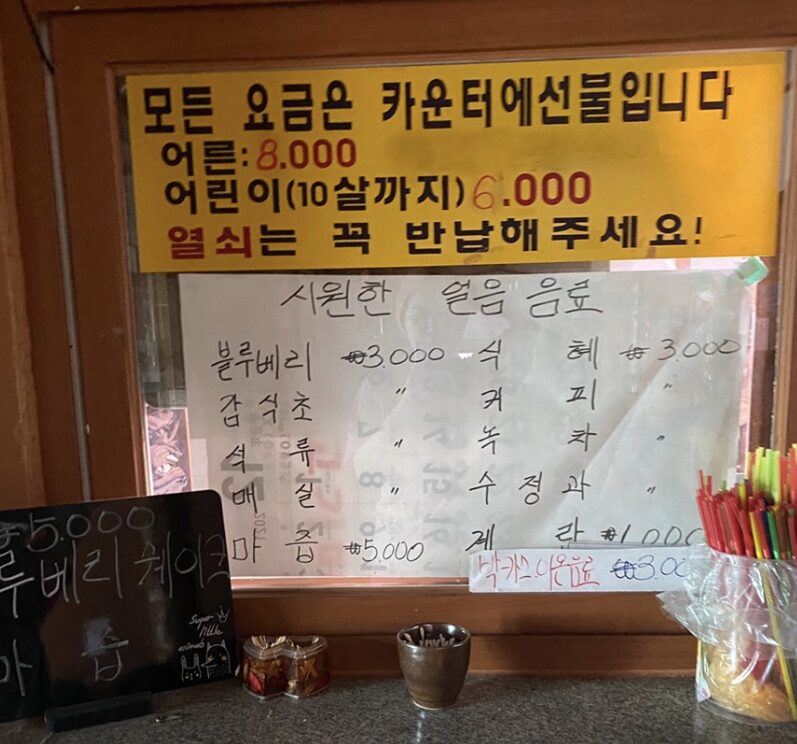 모든 요금은 카운터에선불입니다
어른: 8.000
어린이(10살까지) 6.000
열쇠는 꼭 반납해주세요!
시원한 얼음 음료
블루베리 ₩3.000 식 혜 ₩3.000
감식초 〃 커 피 〃
석 류 〃 녹 차 〃
매 실 〃 수 정 과 〃
마 즙 ₩5.000 계 란 ₩1.000
박카스.이온음료 ₩3.00
₩5.000
루베리쉐이크
마 즙
Super little animals